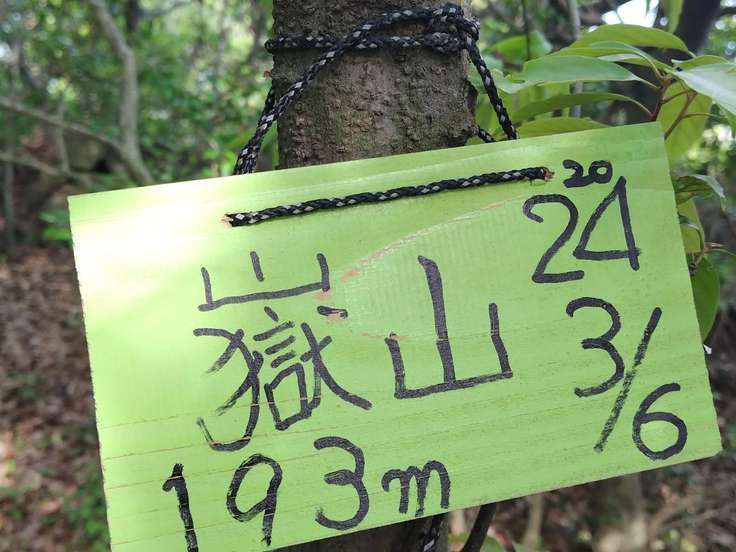 嶽山
193m
20
24
3/6